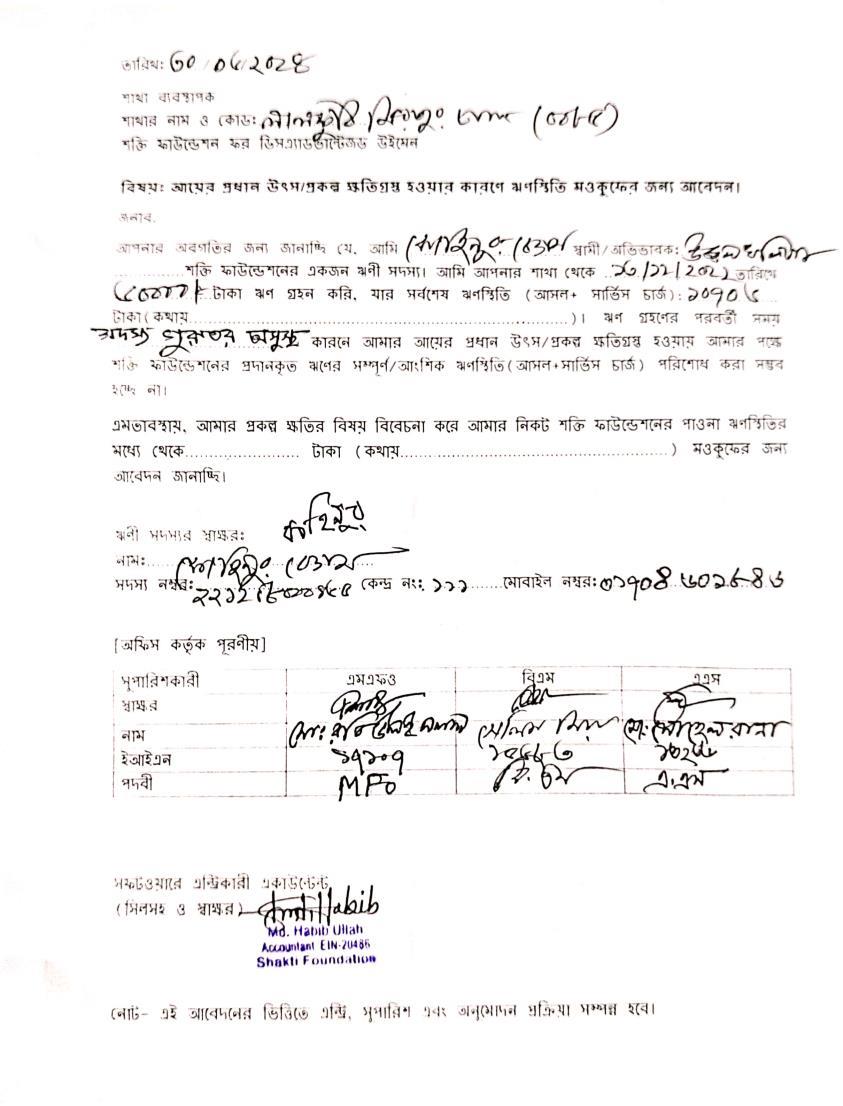 তারিখ: ৩০/০৬/২০২৪
শাখা ব্যবস্থাপক
শাখার নাম ও কোড:
শক্তি ফাউন্ডেশন ফর ডিসএ্যাডভান্টেজড উইমেন
বিষয়: আয়ের প্রধান উৎস/প্রকল্প ক্ষতিগ্রস্ত হওয়ার কারণে ঋণস্থিতি মওকুফের জন্য আবেদন।
জনাব,
আপনার অবগতির জন্য জানাচ্ছি যে, আমি কোহিনুর বেগম স্বামী/অভিভাবক:
শক্তি ফাউন্ডেশনের একজন ঋণী সদস্য। আমি আপনার শাখা থেকে .. তারিখে
টাকা ঋণ গ্রহন করি, যার সর্বশেষ ঋণস্থিতি (আসল+ সার্ভিস চার্জ): ১০৭০৬
টাকা(কথায়..........................................................)। ঋণ গ্রহণের পরবর্তী সময়
সদস্য গুরুতর অসুস্থ কারনে আমার আয়ের প্রধান উৎস/প্রকল্প ক্ষতিগ্রস্ত হওয়ায় আমার পক্ষে
শক্তি ফাউন্ডেশনের প্রদানকৃত ঋণের সম্পূর্ণ/আংশিক ঋণস্থিতি(আসল+সার্ভিস চার্জ) পরিশোধ করা সম্ভব
হচ্ছে না।
এমতাবস্থায়, আমার প্রকল্প ক্ষতির বিষয় বিবেচনা করে আমার নিকট শক্তি ফাউন্ডেশনের পাওনা ঋণস্থিতির
মধ্যে থেকে...................... টাকা (কথায়.....................................................) মওকুফের জন্য
আবেদন জানাচ্ছি।
ঋণী সদস্যর স্বাক্ষর: কহিনুর
নাম: কোহিনুর বেগম
সদস্য নম্বর: কেন্দ্র নং: ১১১ ...... মোবাইল নম্বর:
[অফিস কর্তৃক পূরণীয়]
সুপারিশকারী এমএফও বিএম এএস
স্বাক্ষর
নাম সেলিম মিয়া মো: সোহেল রানা
ইআইএন ১৭১০৭
পদবী MFO বি.এম এ.এস
সফটওয়ারে এন্ট্রিকারী একাউন্টেন্ট
(সিলসহ ও স্বাক্ষর) Habib
Md. Habib Ullah
Accountant EIN-20486
Shakti Foundation
নোট- এই আবেদনের ভিত্তিতে এন্ট্রি, সুপারিশ এবং অনুমোদন প্রক্রিয়া সম্পন্ন হবে।